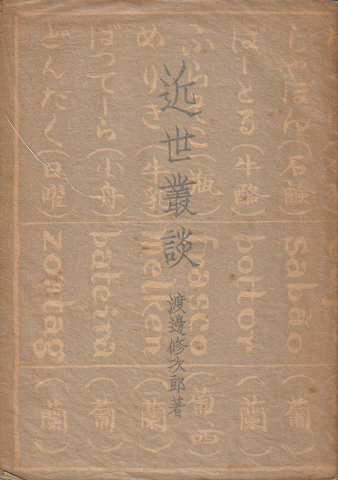 近世叢談
渡邊修次郎著
しやぼん(石鹸) sabão (葡)
ぼーとる(牛酪) bottor (蘭)
ふらすこ(瓶) frasco (葡、西)
めりき(牛乳) melken (蘭)
ばつてーら(小舟) bateira (葡)
どんたく(日曜) zontag (蘭)